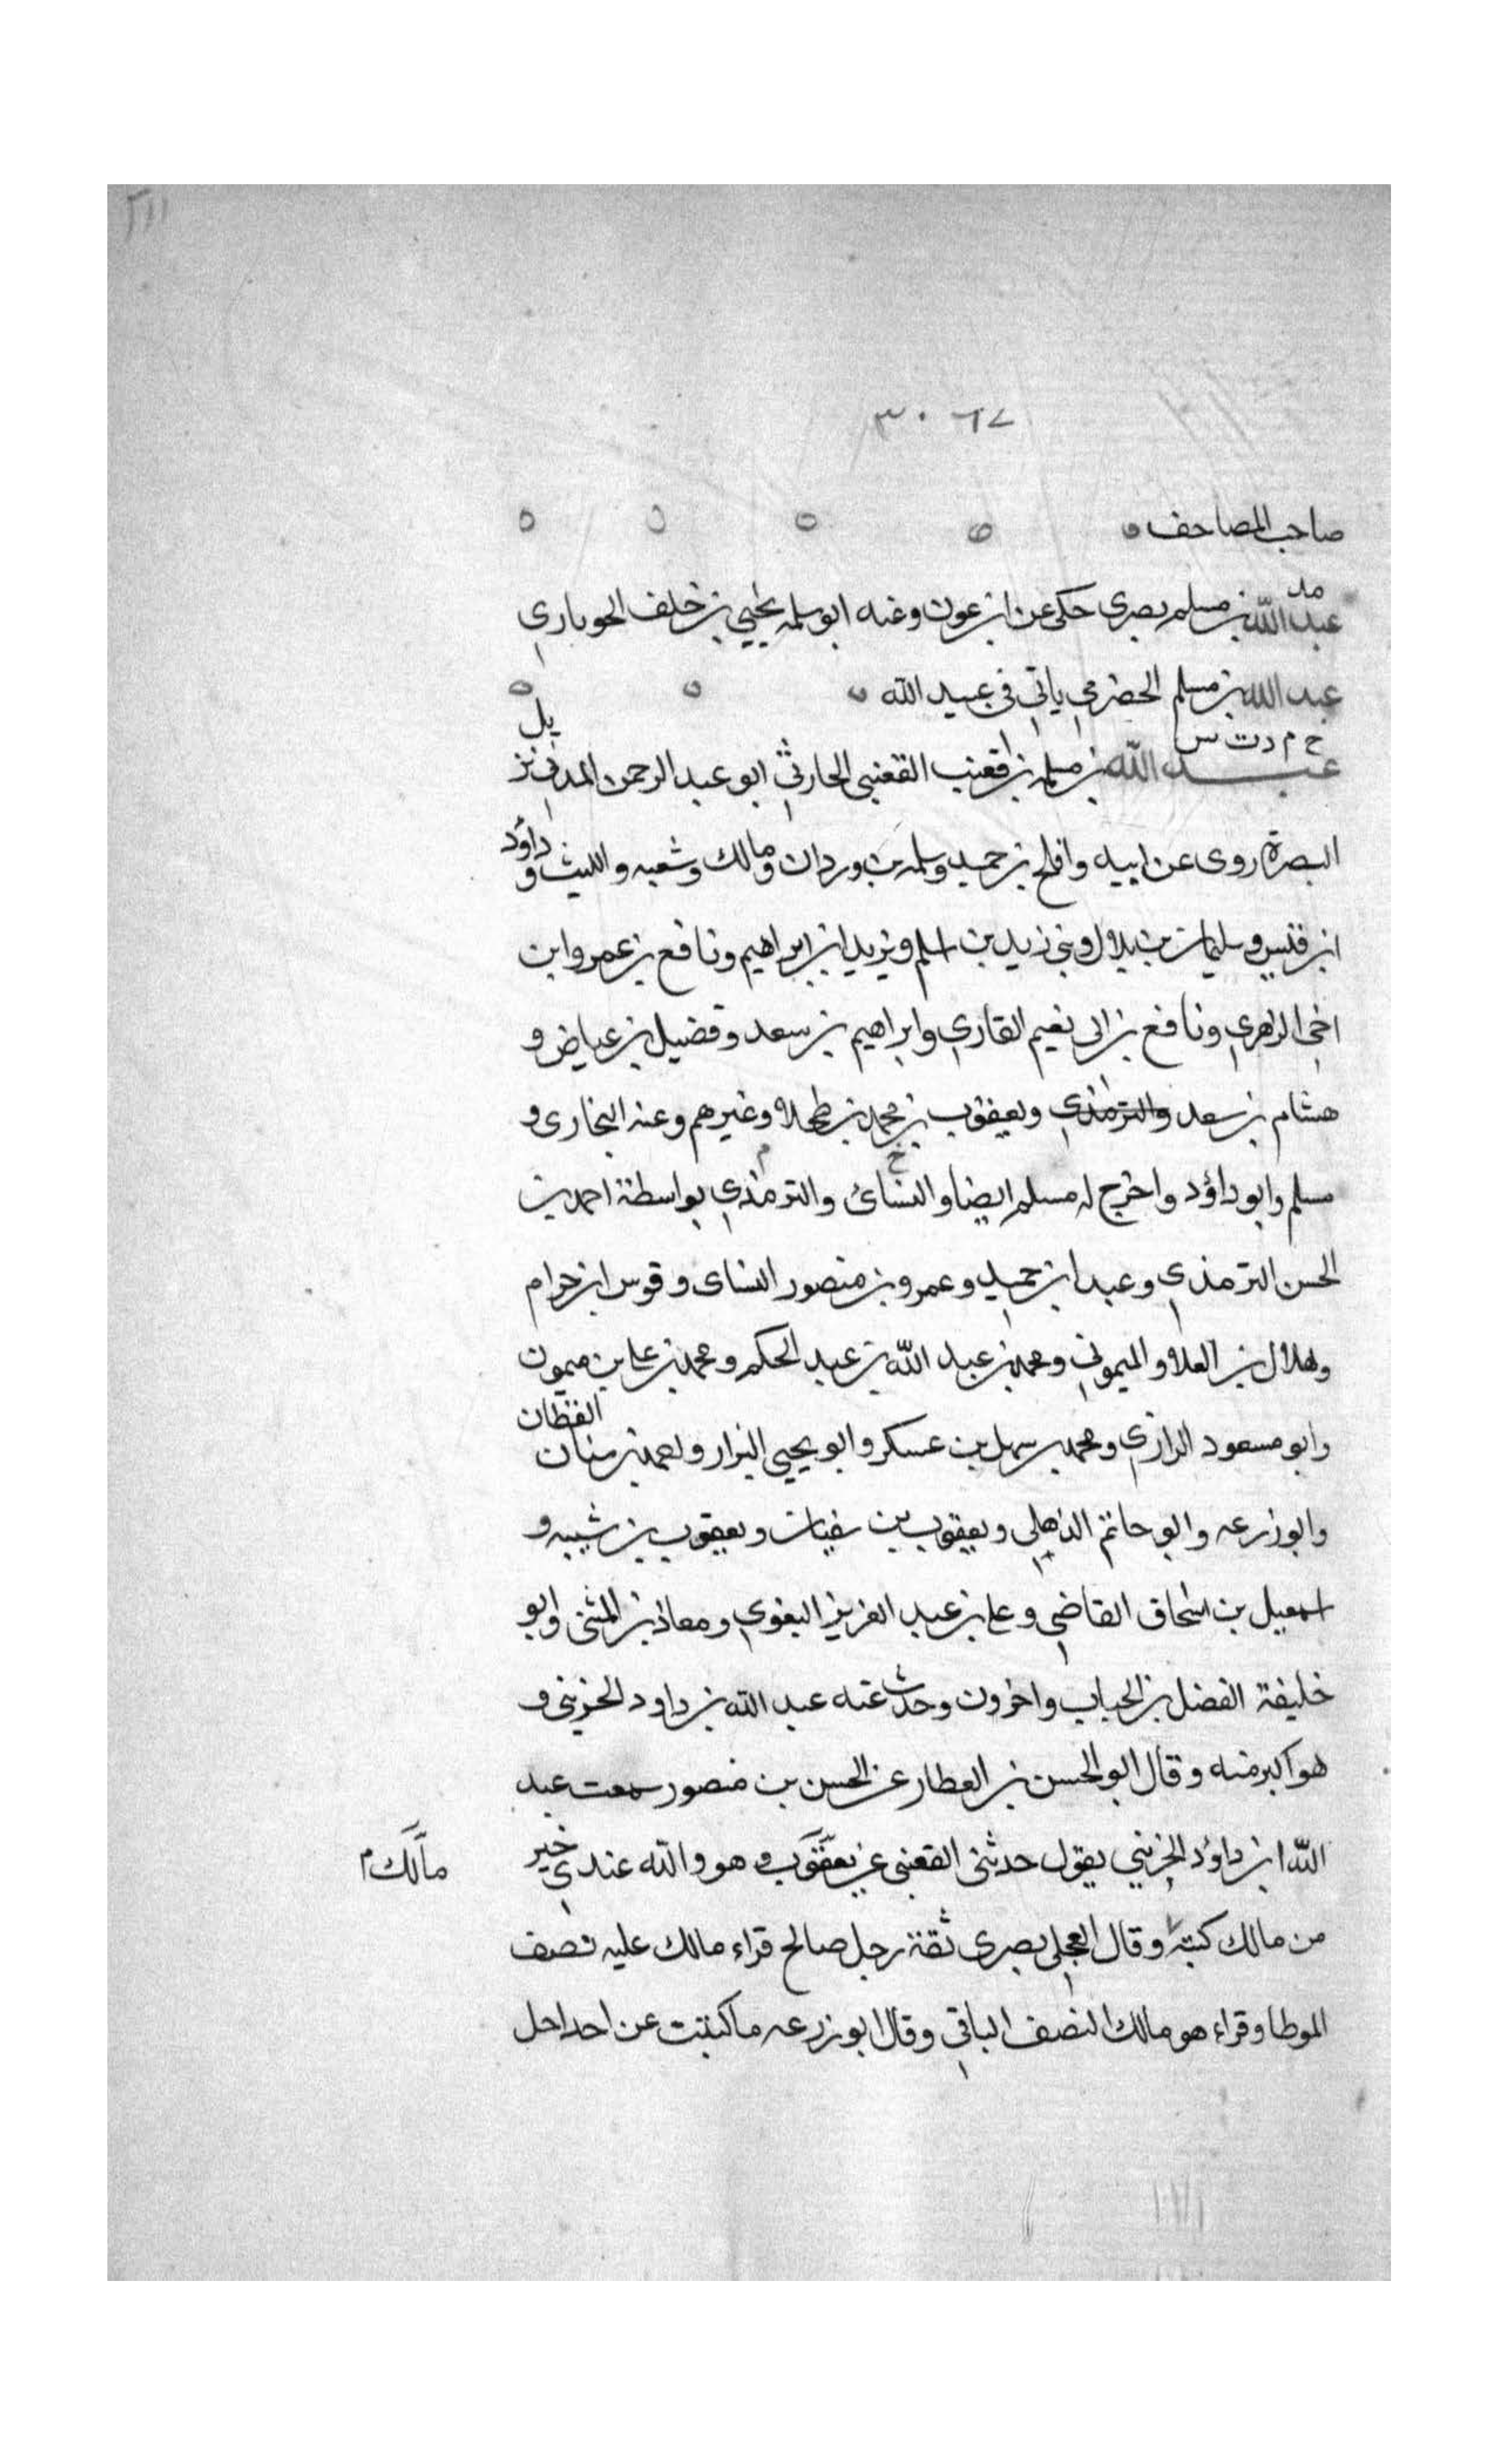 ٣٠٦٧
صاحب المصاحف
مد
عبد الله بن مسلم بصرى حكى عن ابن عون وعنه ابو سلمه يحيي بن خلف الحوبارى
عبد الله بن مسلم الحضرمي ياتي في عبيد الله
خ م د ت س
عبد الله بن مسلمه بن قعنب القعنبى الحارثي ابو عبد الرحمن المدني نزيل
البصرة روى عن ابيه وافلح بن حميد وسلمه بن وردان ومالك وشعبه والليث وداؤد
ابن قيس وسليمان بن بلال وبني زيد بن اسلم ويزيد ابن ابراهيم ونافع بن عمر وابن
اخي الزهري ونافع بن ابى نعيم القاري وابراهيم بن سعد وفضيل بن عياض و
هشام بن سعد والترمذي ويعقوب بن محمد بن طحلاء وغيرهم وعنه البخارى و
مسلم وابو داؤد واخرج له مسلم ايضا والنسائ والترمذي بواسطة احمد بن
الحسن الترمذي وعبد ابن حميد وعمرو بن منصور النساى وقوس ابن حرام
وهلال بن العلاء والميموني ومحمد بن عبد الله بن عبد الحكم ومحمد بن على بن ميمون
وابو مسعود الرازي ومحمد بن سهل بن عسكر وابو يحيى البزار القطان
وابو زرعه وابو حاتم الذهلي ويعقوب بن سفيان ويعقوب بن شيبه و
اسمعيل بن اسحاق القاضي وعلى بن عبد العزيز البغوي ومعاذ بن المثنى وابو
خليفة الفضل بن الحباب واخرون وحدث عنه عبد الله بن داود الخريبى و
هو اكبر منه وقال ابو الحسن بن العطار عن الحسن بن منصور سمعت عبد
الله ابن داؤد الخريبي يقول حدثنى القعنبى عن يعقوب وهو والله عندي خير
مالك م
من مالك كتبته وقال العجلى بصرى ثقة رجل صالح قراء مالك عليه نصف
الموطا وقراء هو مالك النصف الباقي وقال ابو زرعه ما كتبت عن احد اجل